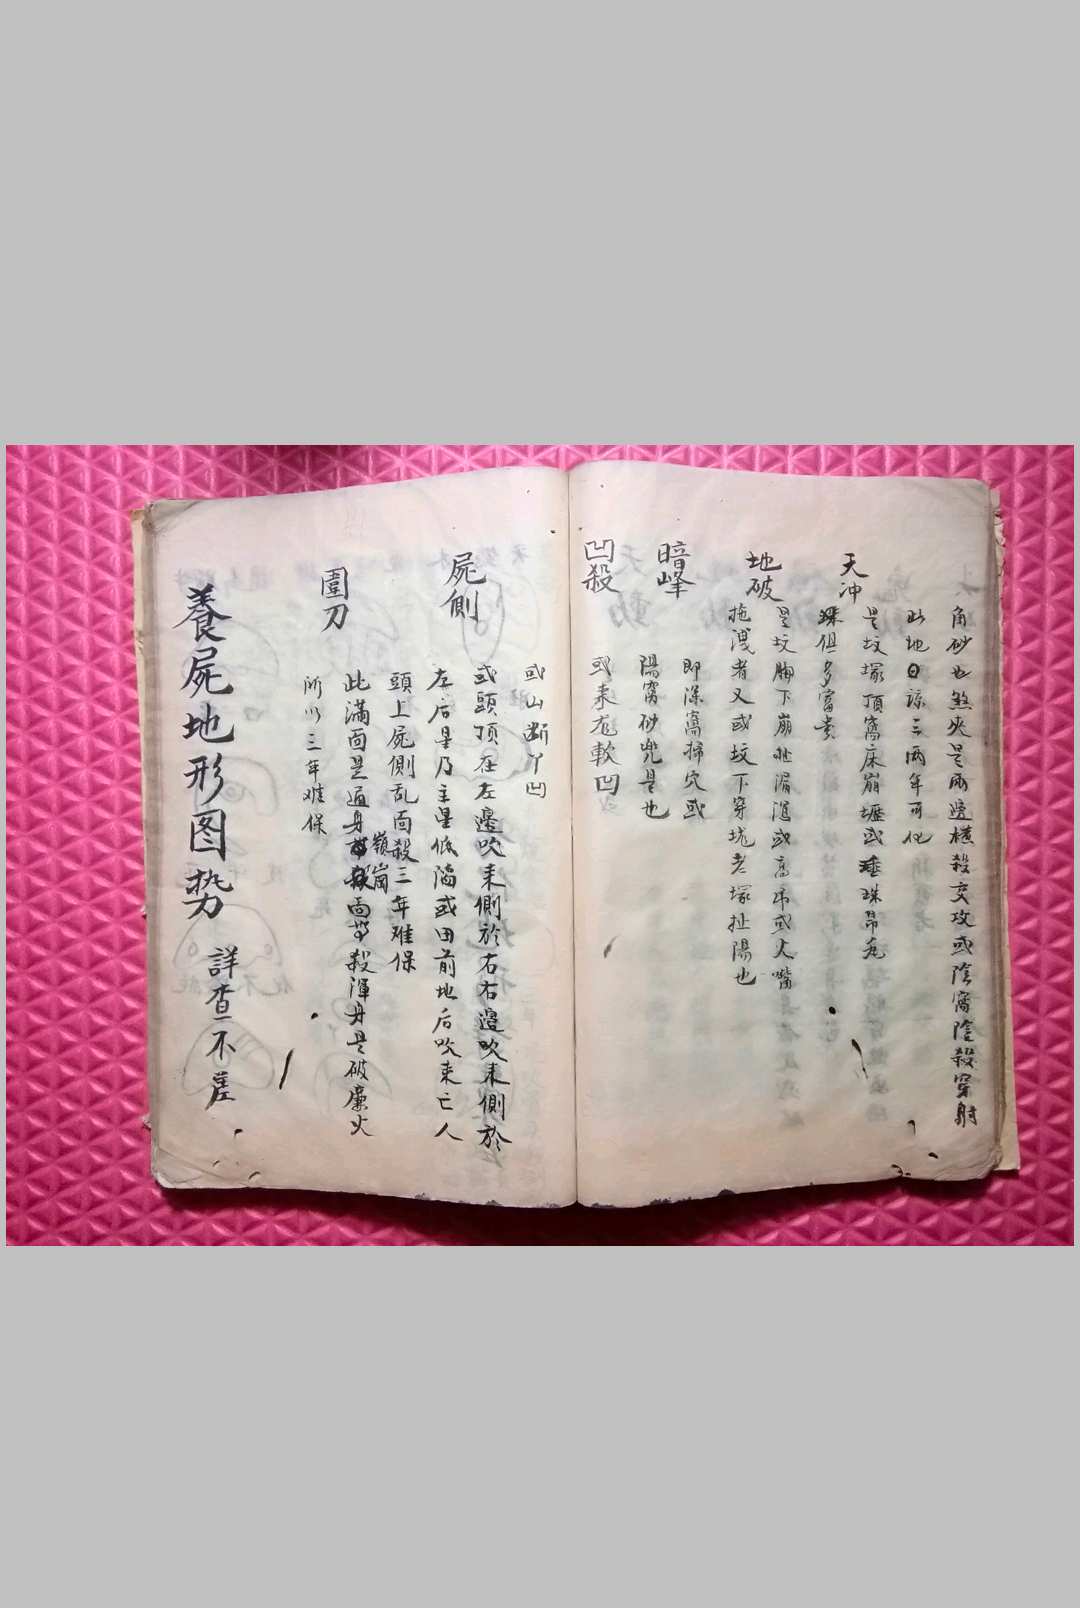 角砂也煞夾是兩邊橫殺交攻或陰窩陰殺穿射
此地日諒三兩年可化
天冲
是坟塚頂窩床崩壢或垂珠吊
但多富貴
地破
是坟胸下崩或高吊或火嘴
拖洩者又或坟下穿坑老塚扯陽也
暗峰
即深窩掃穴或
陽窩砂兜是也
凹殺
或来龙軟凹
或山断丫凹
屍側
或頭頂在左邊吹来側於右右邊吹来側於
左后是乃主星低陷或田前地后吹来亡人
頭上屍側乱面殺三年难保
嶺崗
圍刀
此滿面是通身面帶殺渾身是破廉火
所以三年难保
養屍地形图势 詳查不差